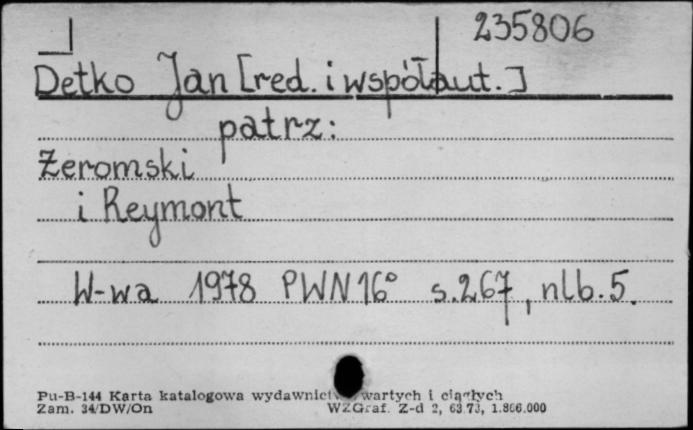 235806
Detko Jan [red. i współaut.]
patrz:
Żeromski
i Reymont
W-wa 1978 PWN 16° s.267, nlb. 5.
Pu-B-144 Karta katalogowa wydawnictw zwartych i ciągłych
Zam. 34/DW/On WZGraf. Z-d 2, 63.73, 1.866.000